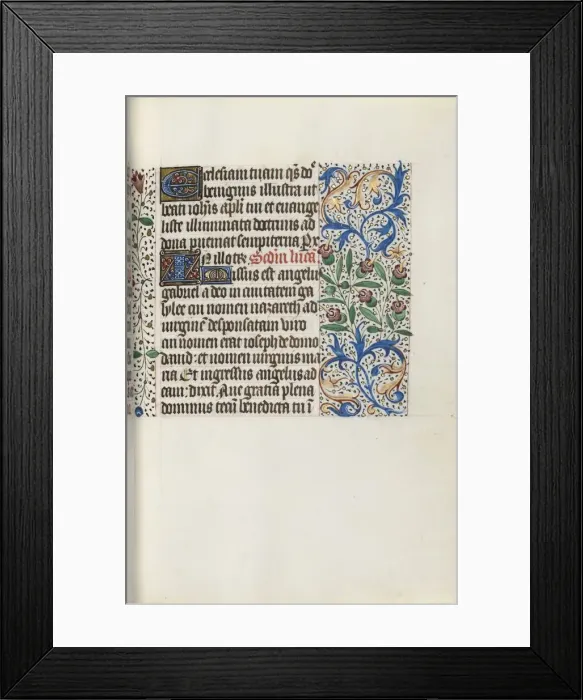 Ecclesiam tuam q̄s dñe
benignus illustra ut
beati ioħis apl̄i tui et euange
liste illuminata doctrinis ad
dona ꝑueniat sempiterna. Px
In illo tꝑr̄ Scdm̄ lucā
Missus est angelus
gabriel a deo in ciuitatem ga
lylee cui nomen nazareth ad
uirginē desponsatam uiro
cui nomen erat ioseph de domo
dauid: et nomen uirginis ma
ria. Et ingressus angelus ad
eam: dixit. Aue gratiā plena
dominus tecū benedicta tu ī